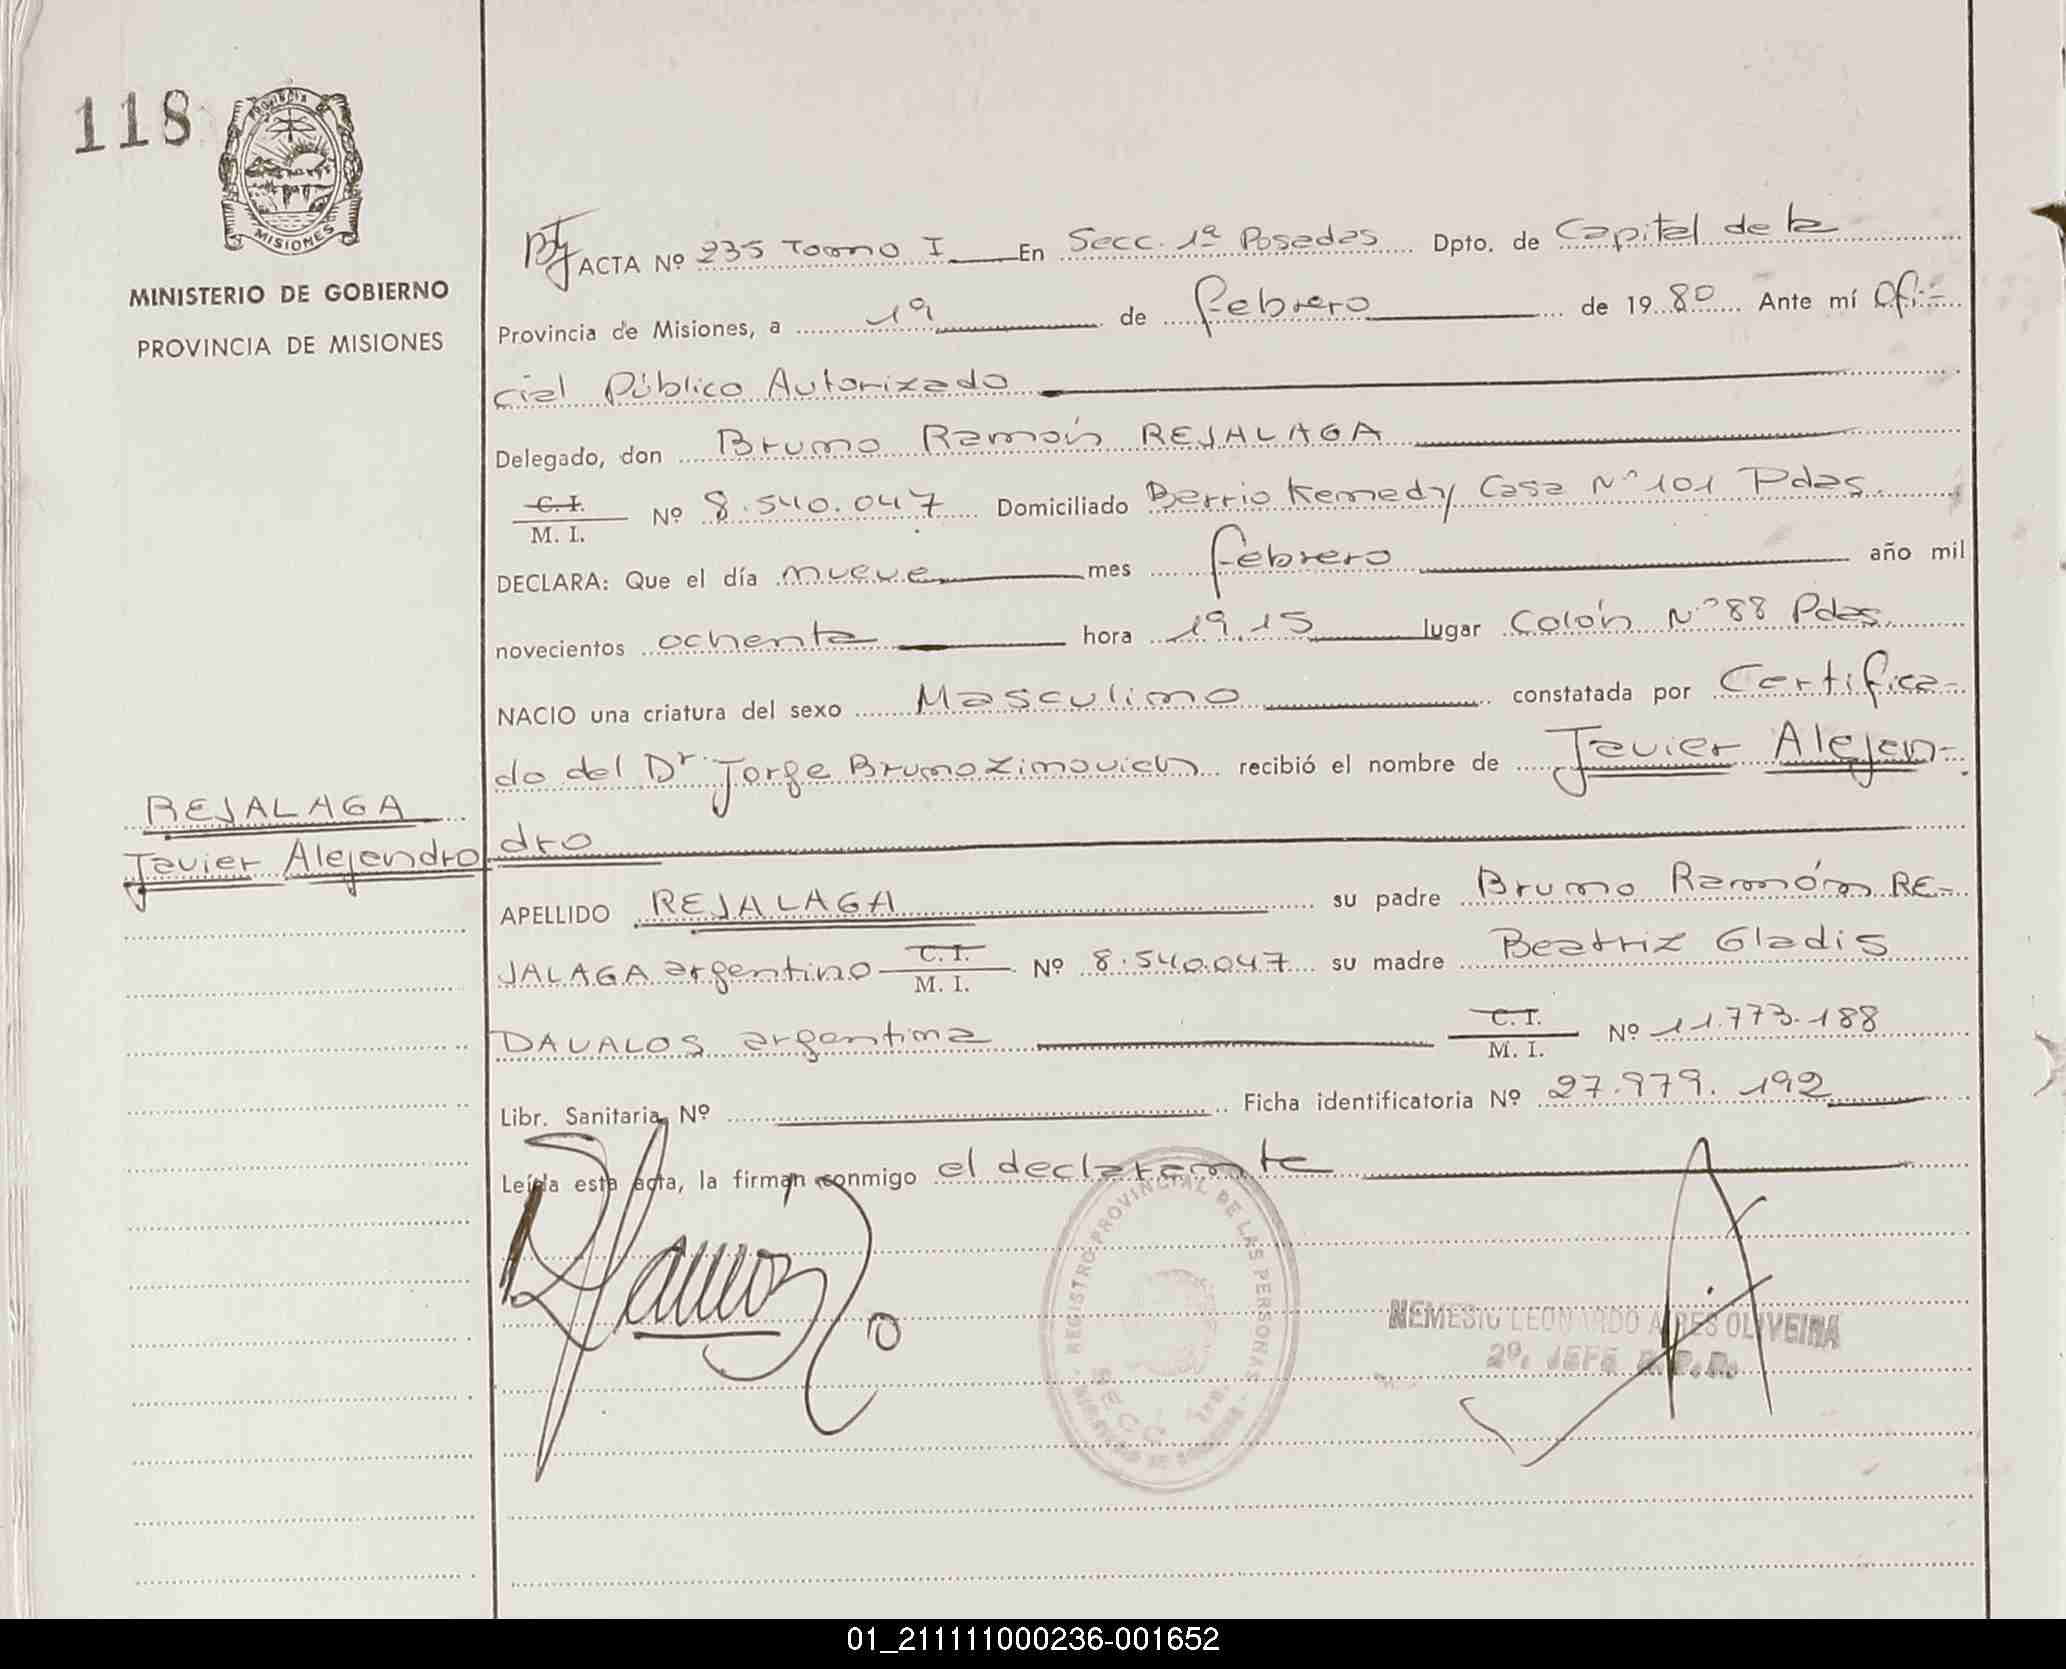 118
PROVINCIA DE
MISIONES
MINISTERIO DE GOBIERNO
PROVINCIA DE MISIONES
REJALAGA
Javier Alejandro
ACTA Nº 235 Tomo I En Secc. 1ª Posadas Dpto. de Capital de la
Provincia de Misiones, a 19 de febrero de 1980 Ante mí Ofi-
cial Público Autorizado
Delegado, don Bruno Ramón REJALAGA
C. I.
M. I. Nº 8.540.047 Domiciliado Barrio Kemedy Casa Nº 101 Pdas.
DECLARA: Que el día nueve mes febrero año mil
novecientos ochenta hora 19.15 lugar Colón Nº 88 Pdas.
NACIO una criatura del sexo Masculino constatada por Certifica-
do del Dr. Jorge Brunozimovich recibió el nombre de Javier Alejan-
dro
APELLIDO REJALAGA su padre Bruno Ramón RE-
JALAGA argentino C. I.
M. I. Nº 8.540.047 su madre Beatriz Gladis
DAVALOS argentina C. I.
M. I. Nº 11.773.188
Libr. Sanitaria Nº Ficha identificatoria Nº 27.979.192
Leída esta acta, la firman conmigo el declarante
REGISTRO PROVINCIAL DE LAS PERSONAS
SECC
NEMESIO LEONARDO AIRES OLIVEIRA
2º. JEFE R.P.P.
01_211111000236-001652